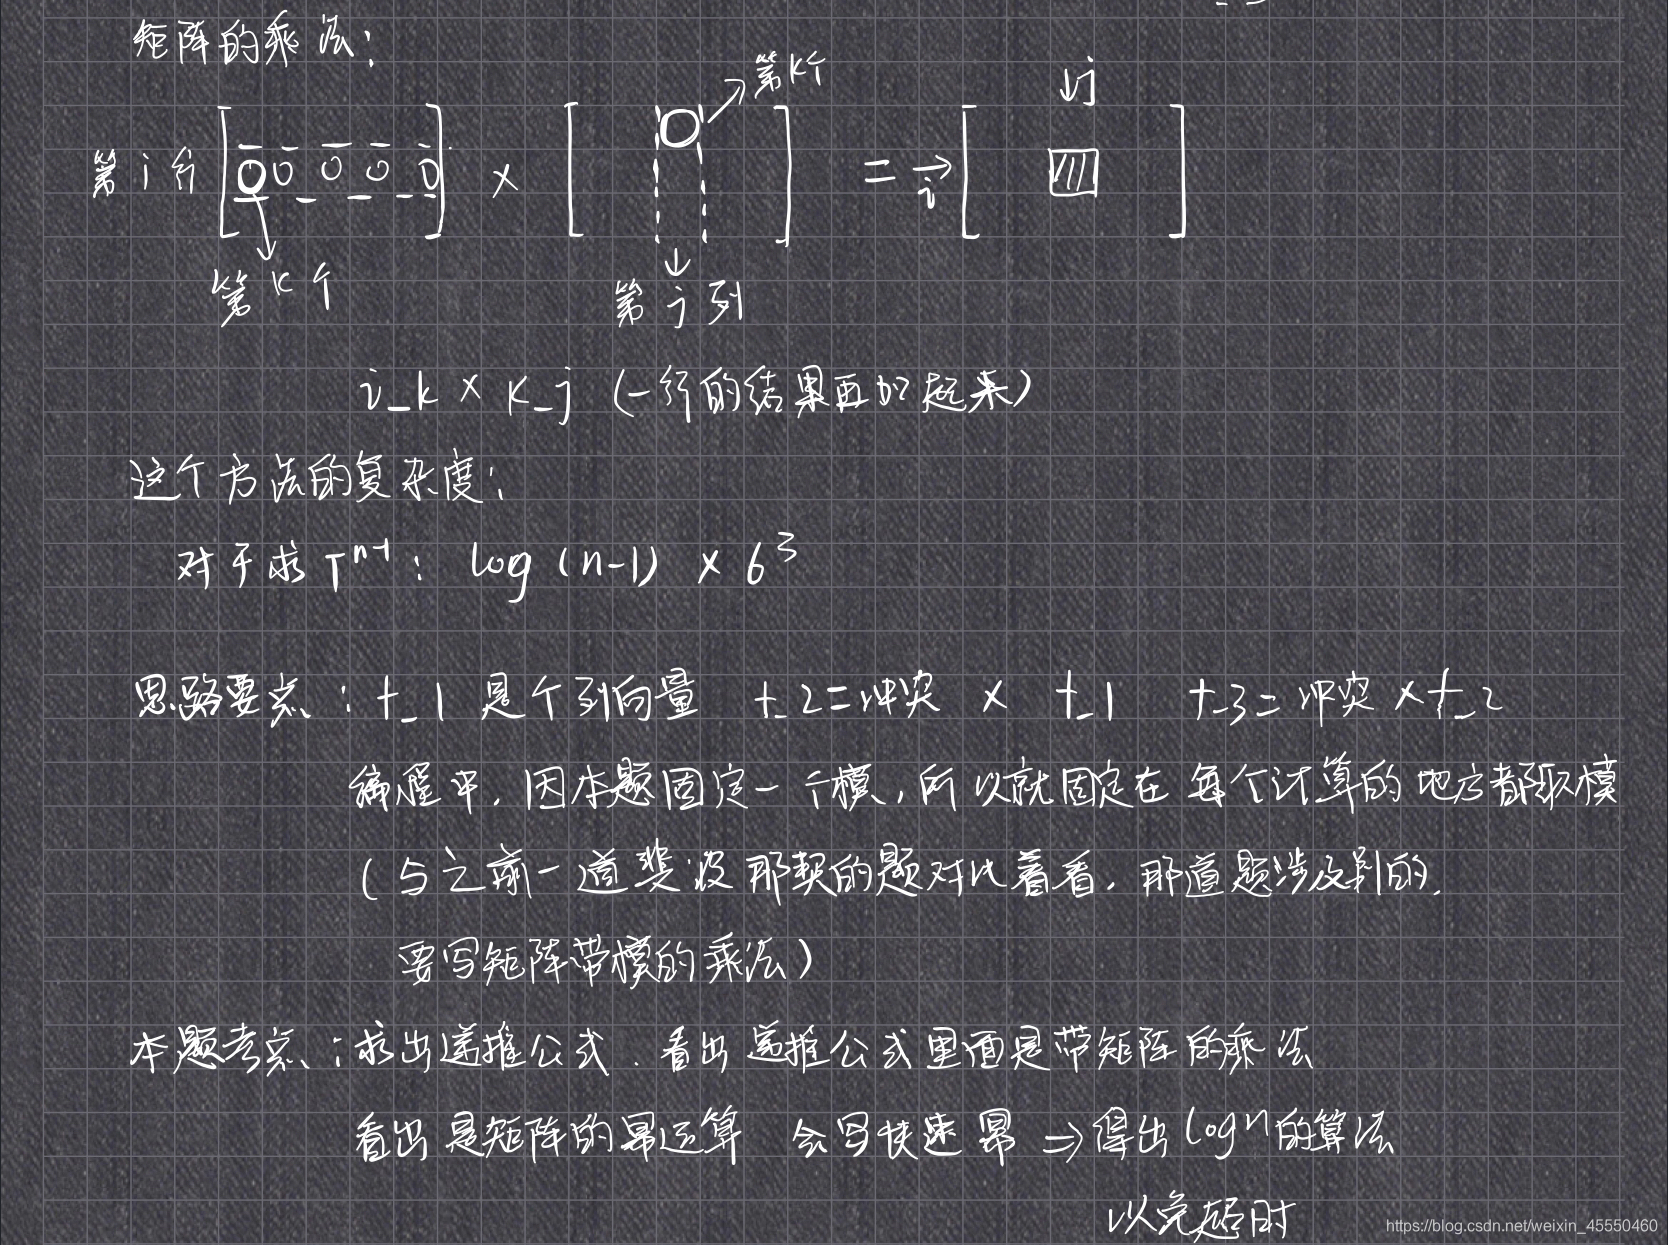 矩阵的乘法:
第k个
↓j
第 i 行 [ 0 0 0 0 0 ] × [ ] = → i [ ]
第 k 个
第 j 列
i_k × k_j (一行的结果再加起来)
这个方法的复杂度:
对于求 T^n-1 : log (n-1) × 6^3
思路要点 : t_1 是个列向量 t_2 = 冲突 × t_1 t_3 = 冲突 × t_2
编程中, 因本题固定一个模, 所以就固定在每个计算的地方都取模
(与之前一道斐波那契的题对比着看, 那道题涉及到的,
要写矩阵带模的乘法)
本题考点 : 求出递推公式. 看出递推公式里面是带矩阵的乘法
看出是矩阵的幂运算 会写快速幂 ⇒ 得出 logn 的算法
以免超时
https://blog.csdn.net/weixin_45550460